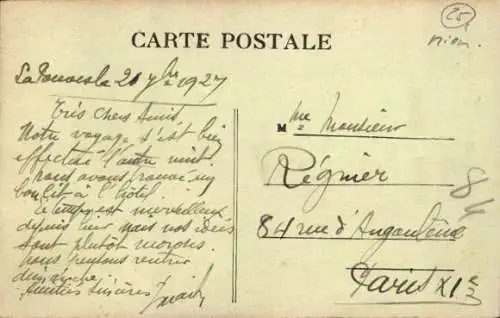 25
CARTE POSTALE
20 7bre 1927
Très Chers Amis
Notre voyage s'est bien
effectué l'autre nuit.
nous avons trouvé un
bon lit à l'hôtel.
Le temps est merveilleux
depuis hier mais nos idées
sont plutôt moroses.
nous pensons rentrer
dimanche.
amitiés sincères
M me Monsieur
Régnier
84 rue d'Angoulême
Paris XIe
84